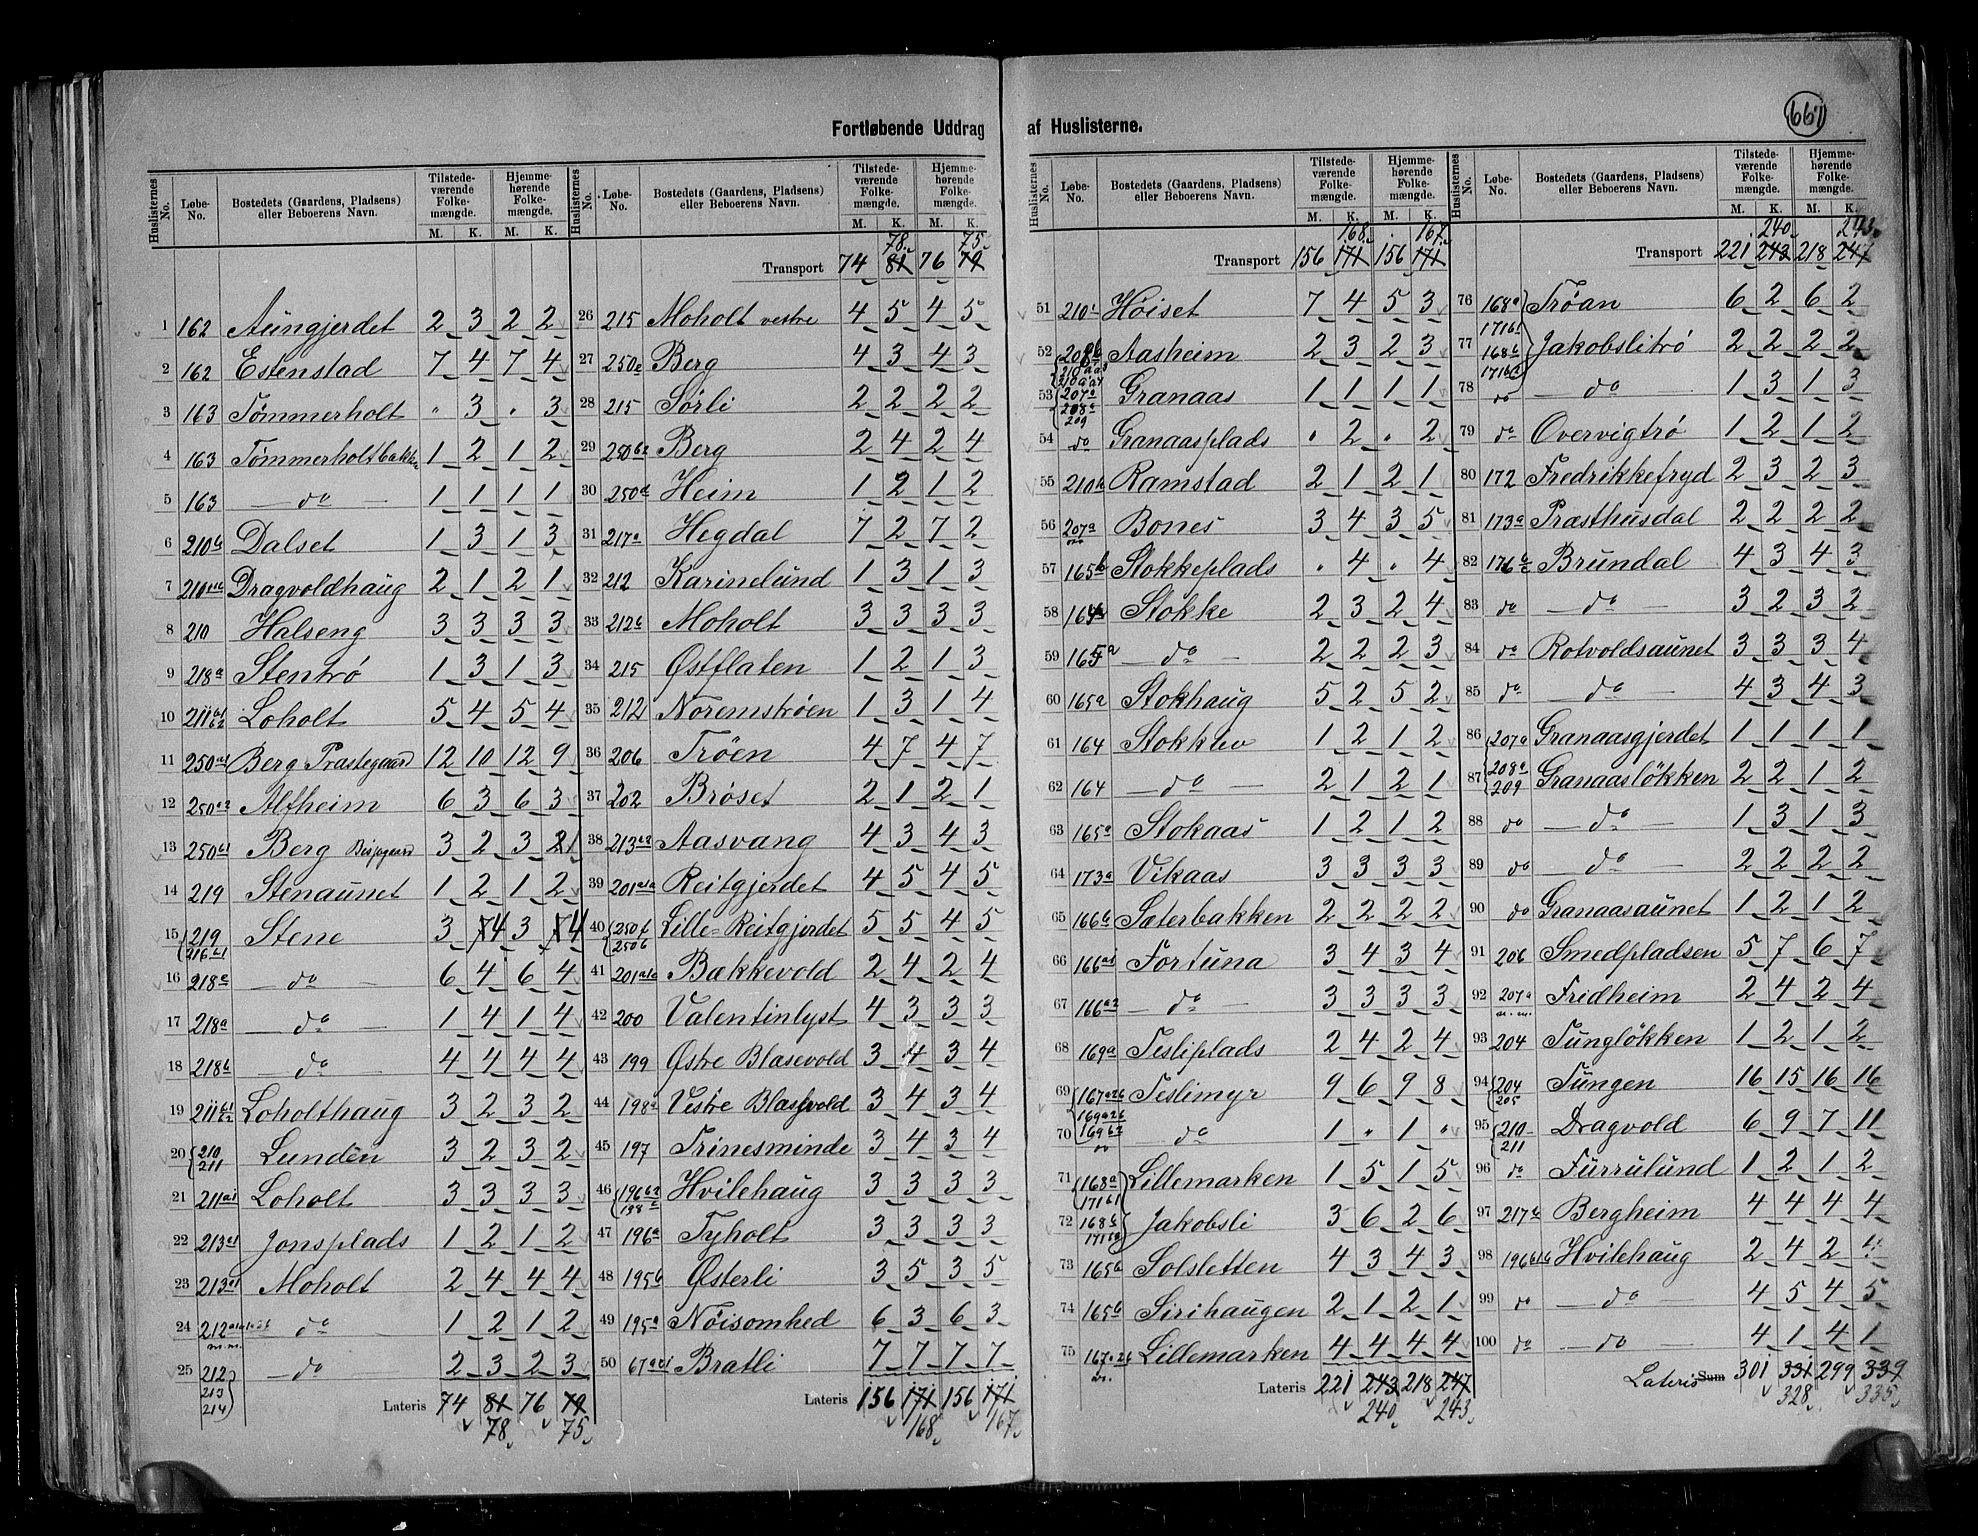 667
Fortløbende Uddrag af Huslisterne.
Huslisternes No. Løbe-No. Bostedets (Gaardens, Pladsens) eller Beboerens Navn. Tilstedeværende Folkemængde. M. K. Hjemmehørende Folkemængde. M. K.
1 162 Aungjerdet 2 3 2 2
2 162 Estenstad 7 4 7 4
3 163 Tømmerholt " 3 " 3
4 163 Tømmerholtbakken 1 2 1 2
5 163 — do — 1 1 1 1
6 210b Dalset 1 3 1 3
7 210 Dragvoldhaug 2 1 2 1
8 210 Halseng 3 3 3 3
9 218a Stentrø 1 3 1 3
10 211b1 b2 Loholt 5 4 5 4
11 250a1 Berg Præstegaard 12 10 12 9
12 250a2 Alfheim 6 3 6 3
13 250b1 Berg Bispegaard 3 2 3 1
14 219 Stenaunet 1 2 1 2
15 219 216b1 Stene 3 4 3 4
16 218c — do — 6 4 6 4
17 218a — do — 1 4 1 4
18 218b — do — 4 4 4 4
19 211b1 b2 Loholthaug 3 2 3 2
20 210 211 Lunden 3 2 3 2
21 211a1 Loholt 3 3 3 3
22 213a1 Jonsplads 1 2 1 2
23 213a1 Moholt 2 4 4 4
24 212 m.m. — do — 1 2 1 2
25 212 213 214 — do — 2 3 2 3
Lateris 74 81 76 79
78 75
Huslisternes No. Løbe-No. Bostedets (Gaardens, Pladsens) eller Beboerens Navn. Tilstedeværende Folkemængde. M. K. Hjemmehørende Folkemængde. M. K.
78 75
Transport 74 81 76 79
26 215 Moholt vestre 4 5 4 5
27 250e Berg 4 3 4 3
28 215 Sørli 2 2 2 2
29 250b2 Berg 2 4 2 4
30 250d Heim 1 2 1 2
31 217a Hegdal 7 2 7 2
32 212 Karinelund 1 3 1 3
33 212b Moholt 3 3 3 3
34 215 Østflaten 1 2 1 3
35 212 Noremstrøen 1 3 1 4
36 206 Trøen 4 7 4 7
37 202 Brøset 2 1 2 1
38 213a2 Aasvang 4 3 4 3
39 201a1a Reitgjerdet 4 5 4 5
40 250f 250b Lille-Reitgjerdet 5 5 4 5
41 201a1a Bækkevold 2 4 2 4
42 200 Valentinlyst 4 3 3 3
43 199 Østre Blasevold 3 4 3 4
44 198a Vestre Blasevold 3 4 3 4
45 197 Trinesminde 3 4 3 4
46 196b2 198c Hvilehaug 3 3 3 3
47 196a Tyholt 3 3 3 3
48 195b Østerli 3 5 3 5
49 195a Nøisomhed 6 3 6 3
50 67a Bratli 7 7 7 7
Lateris 156 171 156 171
168 167
Huslisternes No. Løbe-No. Bostedets (Gaardens, Pladsens) eller Beboerens Navn. Tilstedeværende Folkemængde. M. K. Hjemmehørende Folkemængde. M. K.
168 167
Transport 156 171 156 171
51 210c Høiset 7 4 5 3
52 208b Aasheim 2 3 2 3
53 210aa3 210aa4 207a 208a 209 Granaas 1 1 1 1
54 do Granaasplads " 2 " 2
55 210b Ramstad 2 1 2 1
56 207a m.m. Bones 3 4 3 5
57 165b Stokkeplads " 4 " 4
58 164 Stokke 2 3 2 4
59 165a — do — 2 2 2 3
60 165a Stokhaug 5 2 5 2
61 164 Stokkev 1 2 1 2
62 164 — do — 2 1 2 1
63 165a Stokaas 1 2 1 2
64 173a Vikaas 3 3 3 3
65 166b Sæterbakken 2 2 2 2
66 166a1 Fortuna 3 4 3 4
67 166a2 — do — 3 3 3 3
68 169a Tesliplads 2 4 2 4
69 167a2b 169a2b Teslimyr 9 6 9 8
70 169b2 do — do — 1 " 1 "
71 168a 171b1 Lillemarken 1 5 1 5
72 168b 171b2 Jakobsli 3 6 2 6
73 165a Solsletten 4 3 4 3
74 165b Sirihaugen 2 1 2 1
75 167a2b m. Lillemarken 4 4 4 4
Lateris 221 243 218 247
240 243
Huslisternes No. Løbe-No. Bostedets (Gaardens, Pladsens) eller Beboerens Navn. Tilstedeværende Folkemængde. M. K. Hjemmehørende Folkemængde. M. K.
240 243
Transport 221 243 218 247
76 168a Trøan 6 2 6 2
77 171b1 168b Jakobslitrø 2 2 2 2
78 171b2 do — do — 1 3 1 3
79 do Overvigtrø 1 2 1 2
80 172 Fredrikkefryd 2 3 2 3
81 173a Præsthusdal 2 2 2 2
82 176b Brundal 4 3 4 3
83 do — do — 3 2 3 2
84 do Rotvoldsaunet 3 3 3 4
85 do — do — 4 3 4 3
86 207a Granaasgjerdet 1 1 1 1
87 208a 209 Granaasløkken 2 2 1 2
88 do — do — 1 3 1 3
89 do — do — 2 2 2 2
90 do Granaasaunet 1 2 1 2
91 206 Smedpladsen 5 7 6 7
92 207a m.m. Fridheim 2 4 2 4
93 204 Tungløkken 1 2 1 2
94 204 205 Tungen 16 15 16 16
95 210 211 Dragvold 6 9 7 11
96 do Furrulund 1 2 1 2
97 217b Bergheim 4 4 4 4
98 196b1b Hvilehaug 2 4 2 4
99 do — do — 4 5 4 5
100 do — do — 4 1 4 1
Lateris Sum 301 331 299 339
328 335